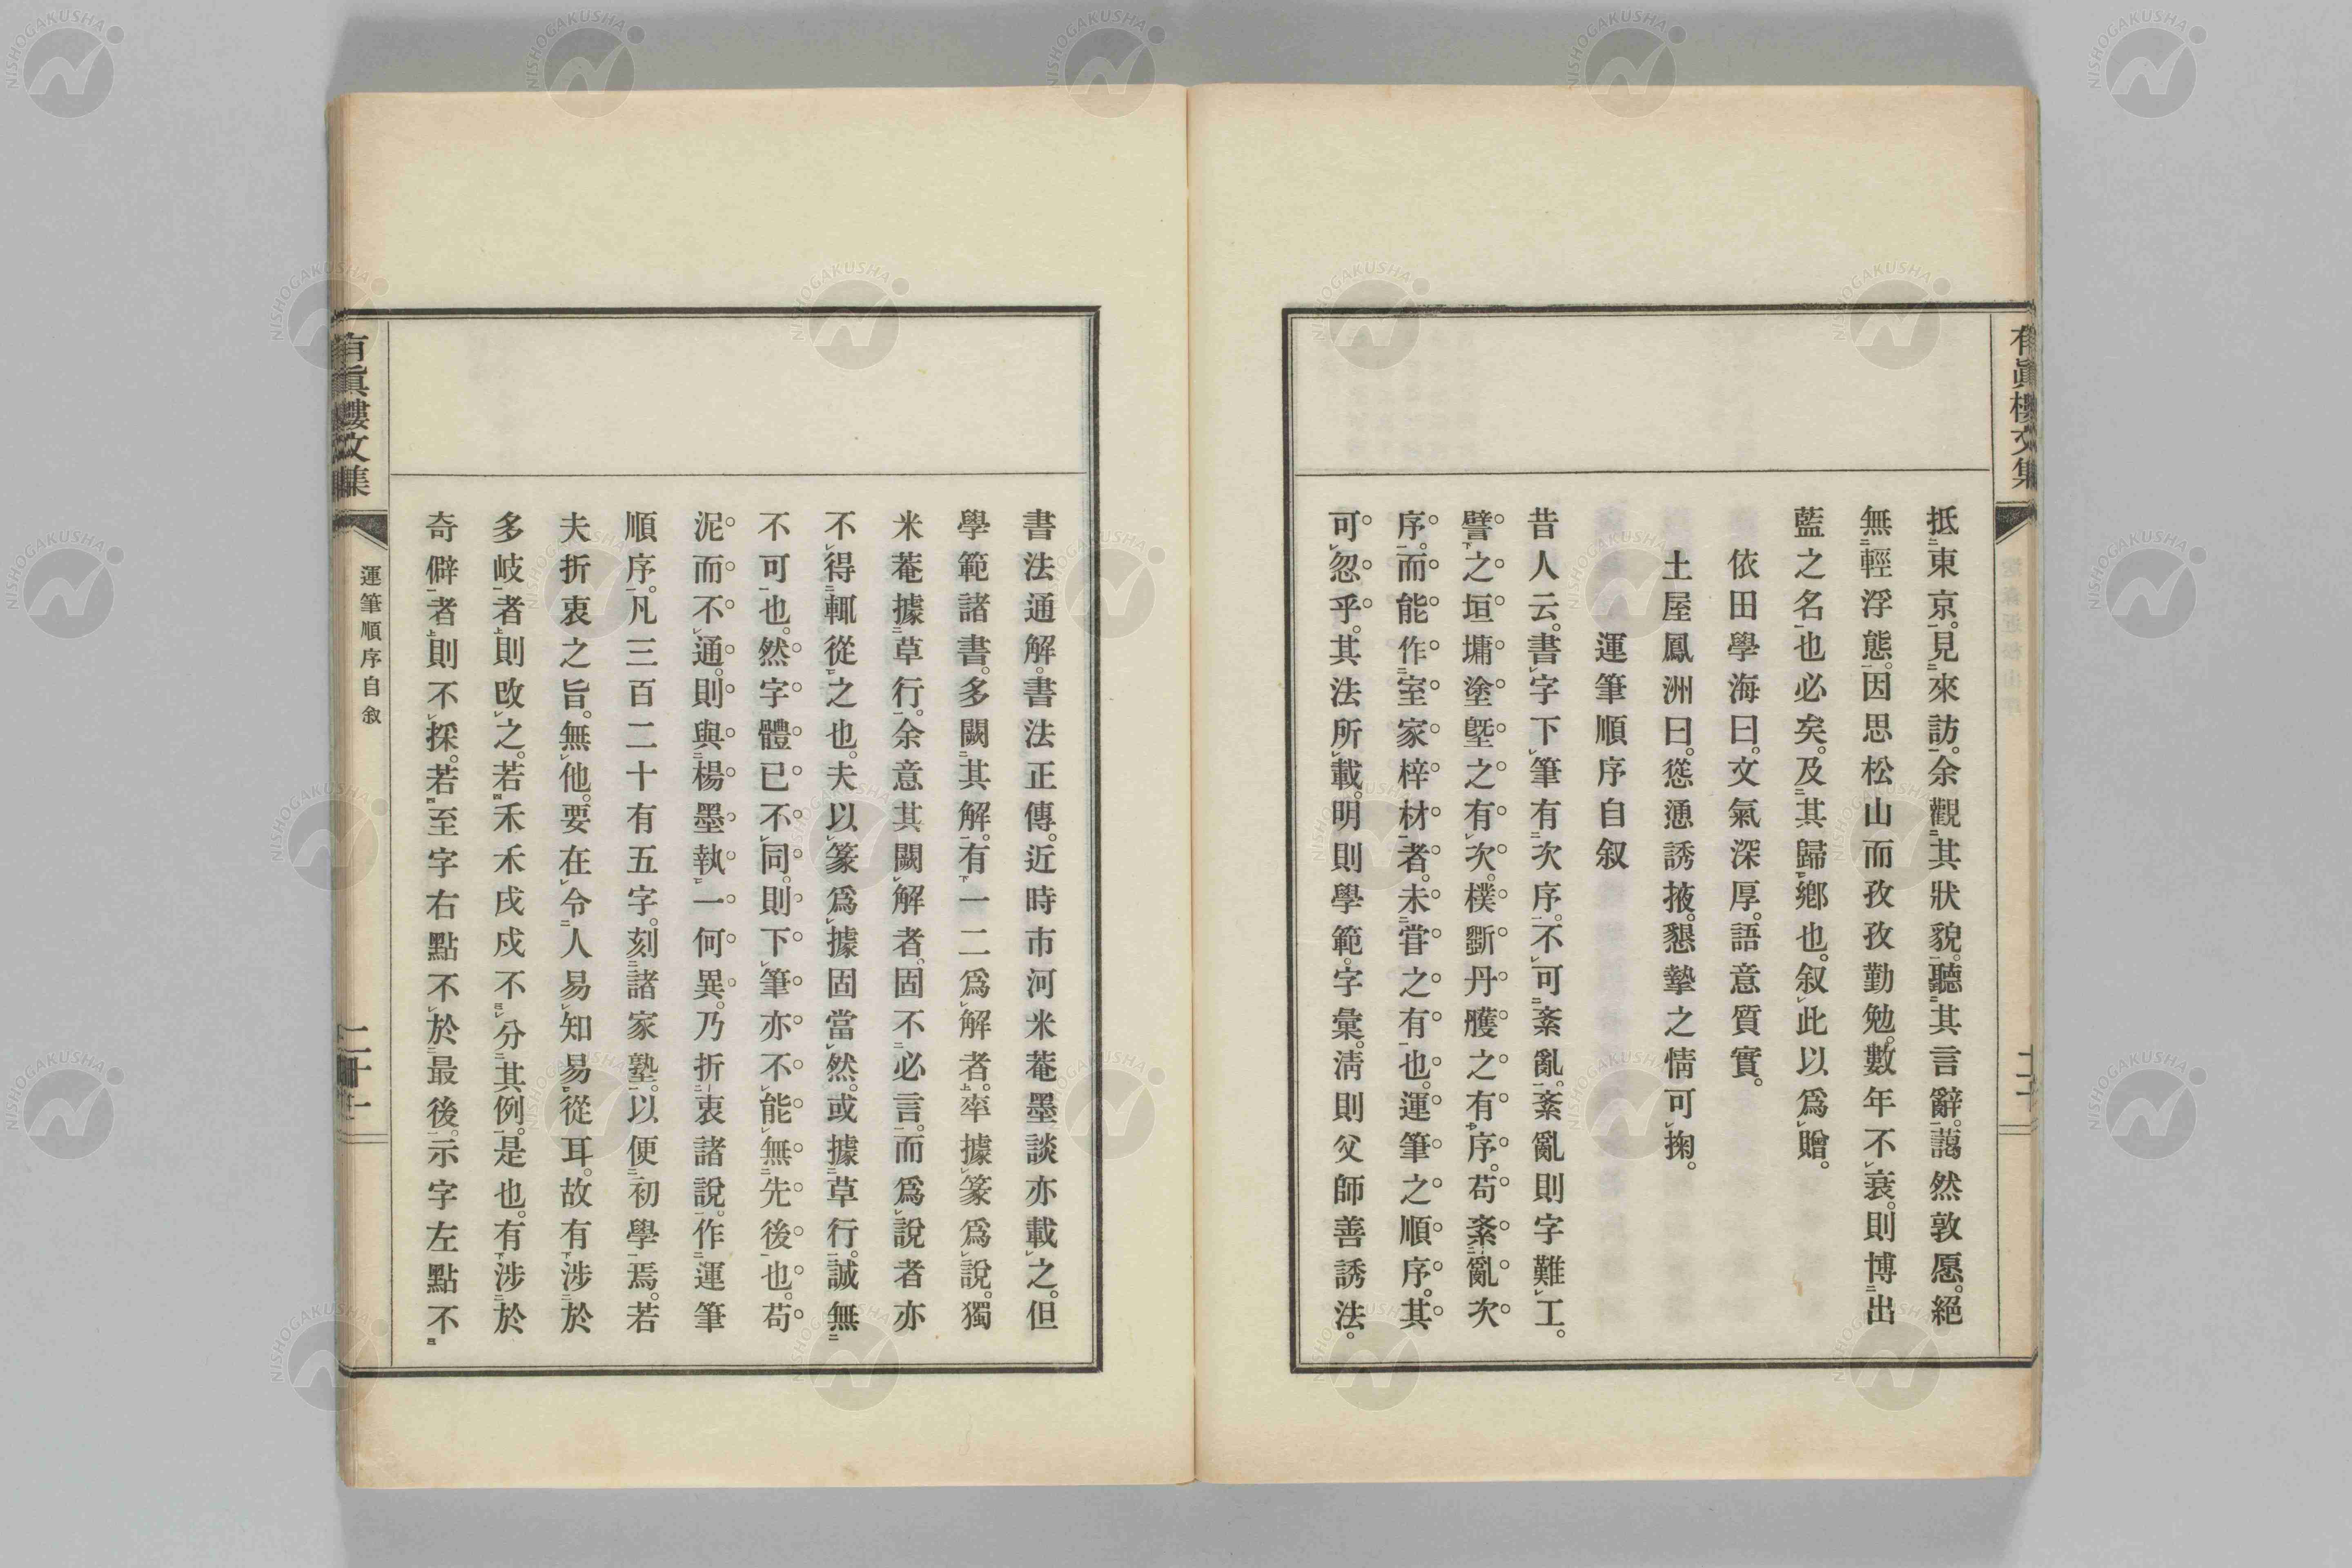 有眞樓文集
抵東京。見來訪。余觀其狀貌。聽其言辭。藹然敦愿。絕
無輕浮態。因思松山而孜孜勤勉。數年不衰。則博出
藍之名也必矣。及其歸鄉也。叙此以爲贈。
依田學海曰。文氣深厚。語意質實。
土屋鳳洲曰。慫慂誘掖。懇摯之情可掬。
運筆順序自叙
昔人云。書字下筆有次序。不可紊亂。紊亂則字難工。
譬之垣墉塗塈之有次。樸斲丹雘之有序。苟紊亂次
序。而能作室家梓材者。未甞之有也。運筆之順序。其
可忽乎。其法所載。明則學範。字彙。淸則父師善誘法。
書法通解。書法正傳。近時市河米菴墨談亦載之。但
學範諸書。多闕其解。有一二爲解者。率據篆爲說。獨
米菴據草行。余意其闕解者。固不必言。而爲說者亦
不得輒從之也。夫以篆爲據固當然。或據草行。誠無
不可也。然字體已不同。則下筆亦不能無先後也。苟
泥而不通。則與楊墨執一何異。乃折衷諸說。作運筆
順序。凡三百二十有五字。刻諸家塾。以便初學焉。若
夫折衷之旨。無他。要在令人易知易從耳。故有涉於
多岐者則改之。若禾禾戌戍不分其例。是也。有涉於
奇僻者則不採。若至字右點不於最後。示字左點不
有眞樓文集
運筆順序自敘
二十一
NISHOGAKUSHA